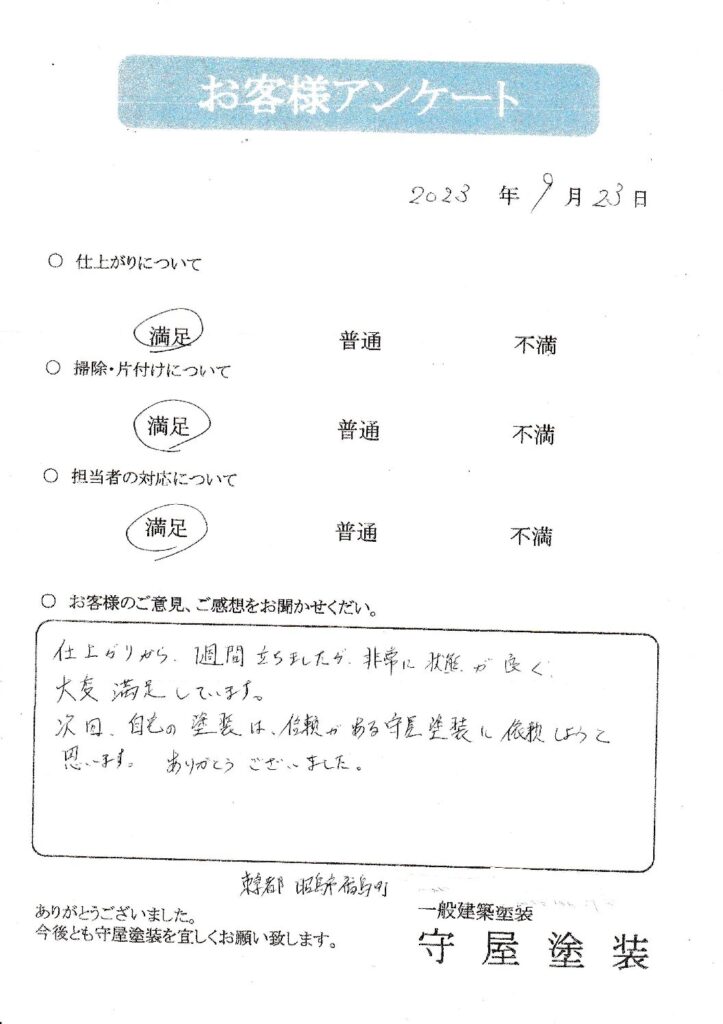 お客様アンケート
2023 年 9 月 23 日
○ 仕上がりについて
満足 普通 不満
○ 掃除・片付けについて
満足 普通 不満
○ 担当者の対応について
満足 普通 不満
○ お客様のご意見、ご感想をお聞かせくだい。
仕上がりから、1週間立ちましたが、非常に状態が良く、
大変満足しています。
次回、自宅の塗装は、信頼がある守屋塗装に依頼しようと
思います。 ありがとうございました。
東京都 昭島市福島町
ありがとうございました。
今後とも守屋塗装を宜しくお願い致します。
一般建築塗装
守屋塗装